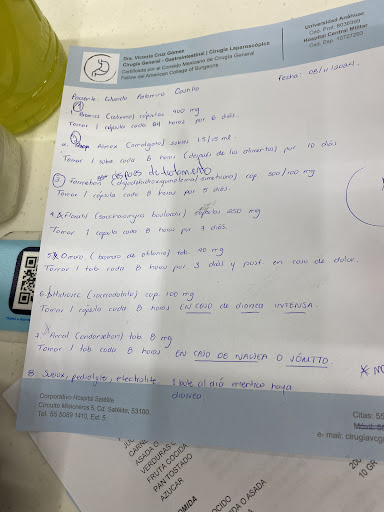 Dra. Vicente Cruz Gómez
Cirugía General - Gastrointestinal | Cirugía Laparoscópica
Certificada por el Consejo Mexicano de Cirugía General
Fellow del American College of Surgeons
Universidad Anáhuac
Hospital Central Militar
Fecha: 08/11/2024
Paciente: Eduardo Palomino
1
400 mg
Tomar 1 cápsula cada 24 horas por 6 días.
2. sobres 1.5/15 ml
Tomar 1 sobre cada 8 horas (después de los alimentos) por 10 días
después de tratamiento
3. cap 300/100 mg
Tomar 1 cápsula cada 8 horas por 5 días.
4. Floratil (saccharomyces boulardii) cápsulas 250 mg
Tomar 1 capsula cada 8 horas por 7 días.
5. tab. 40 mg
Tomar 1 tab cada 8 horas por 3 días y post. en caso de dolor.
6. (racecadotrilo) cap. 100 mg
Tomar 1 cápsula cada 8 horas EN CASO de diarrea INTENSA.
7. (ondansetron) tab. 8 mg
Tomar 1 tab cada 8 horas EN CASO DE NAUSEA O VÓMITO.
8. Suerox, pedialyte, electrolite 1 bote al día mientras haya
diarrea
Corporativo Hospital Satélite
Circuito Misioneros 5, Cd. Satélite, 53100.
Tel. 55 5089 1410, Ext. 5
Citas: 55
e- mail: cirugiavcg
ASADO O
VERDURAS
FRUTA COCIDA
PAN TOSTADO
AZUCAR
COCIDO
O ASADA
200
10 GR